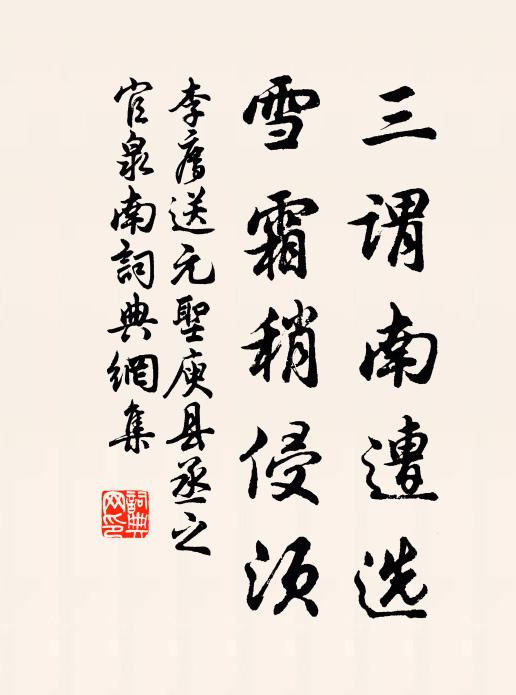 三谓南遭选
雪霜稍侵须
李廌送元聖庾县丞之
官泉南詞典網集
詞典网印